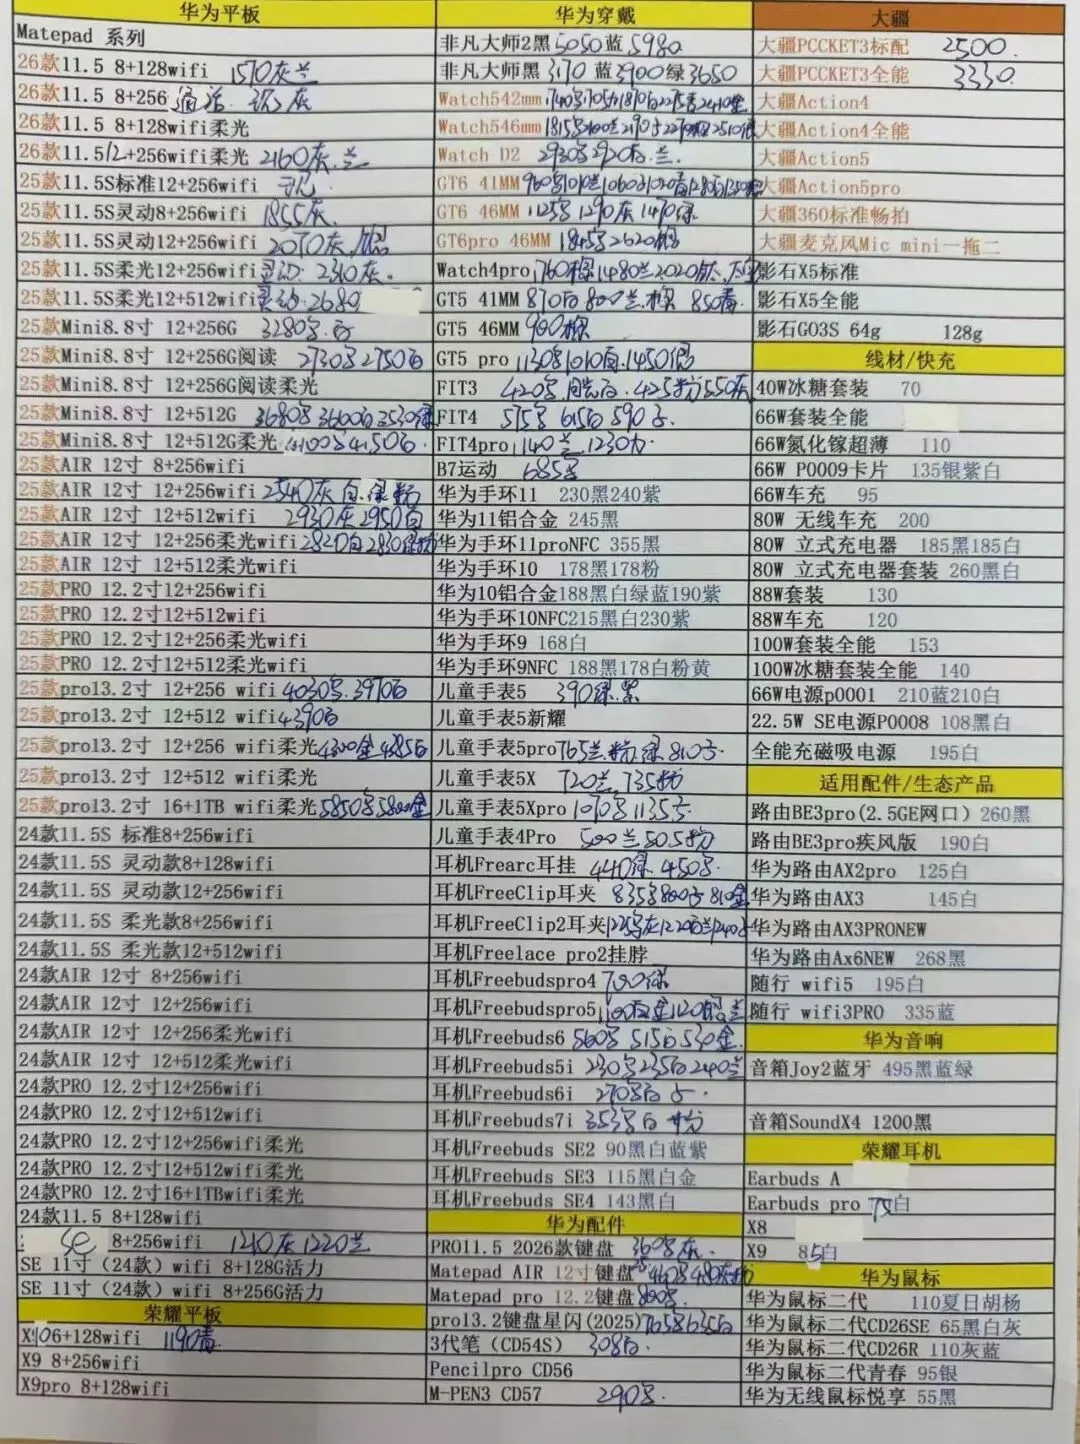 华为平板
Matepad 系列
26款11.5 8+128wifi 1570灰兰
26款11.5 8+256 通话 灰
26款11.5 8+128wifi柔光
26款11.5 12+256wifi柔光 2160灰.兰
25款11.5S标准12+256wifi
25款11.5S灵动8+256wifi 1855灰
25款11.5S灵动12+256wifi 2070灰
25款11.5S柔光12+256wifi 2310灰
25款11.5S柔光12+512wifi 灵动 2680
25款Mini8.8寸 12+256G 3280 白
25款Mini8.8寸 12+256G阅读 2730黑2750白
25款Mini8.8寸 12+256G阅读柔光
25款Mini8.8寸 12+512G 3680黑3600白3530绿
25款Mini8.8寸 12+512G柔光 4100黑4150白
25款AIR 12寸 8+256wifi
25款AIR 12寸 12+256wifi 2540灰 白.绿 粉
25款AIR 12寸 12+512wifi 2930灰2950白
25款AIR 12寸 12+256柔光wifi 2820白2830绿粉
25款AIR 12寸 12+512柔光wifi
25款PRO 12.2寸12+256wifi
25款PRO 12.2寸12+512wifi
25款PRO 12.2寸12+256柔光wifi
25款PRO 12.2寸12+512柔光wifi
25款pro13.2寸 12+256 wifi 4030黑.3970白
25款pro13.2寸 12+512 wifi 4390白
25款pro13.2寸 12+256 wifi柔光 4300金4285白
25款pro13.2寸 12+512 wifi柔光
25款pro13.2寸 16+1TB wifi柔光 5850黑5800金
24款11.5S 标准8+256wifi
24款11.5S 灵动款8+128wifi
24款11.5S 灵动款12+256wifi
24款11.5S 柔光款8+256wifi
24款11.5S 柔光款12+512wifi
24款AIR 12寸 8+256wifi
24款AIR 12寸 12+256wifi
24款AIR 12寸 12+256柔光wifi
24款AIR 12寸 12+512柔光wifi
24款PRO 12.2寸12+256wifi
24款PRO 12.2寸12+512wifi
24款PRO 12.2寸12+256wifi柔光
24款PRO 12.2寸12+512wifi柔光
24款PRO 12.2寸16+1TBwifi柔光
24款11.5 8+128wifi
SE 8+256wifi 1210灰1220兰
SE 11寸（24款）wifi 8+128G活力
SE 11寸（24款）wifi 8+256G活力
荣耀平板
X10 6+128wifi 1190青
X9 8+256wifi
X9pro 8+128wifi
华为穿戴
非凡大师2黑5050蓝5980
非凡大师黑3170 蓝3900绿3650
Watch542mm
Watch546mm
Watch D2 2930黑2920白.兰
GT6 41MM
GT6 46MM 1125黑1290灰1470绿
GT6pro 46MM 1845黑2620
Watch4pro 1760棕1480兰2020钛
GT5 41MM 870白800兰.棕 850青
GT5 46MM 900棕
GT5 pro 1130黑1010白.1450
FIT3 420黑.白.425粉550灰
FIT4 575黑 615白 590
FIT4pro 1140兰.1230
B7运动 685黑
华为手环11 230黑240紫
华为11铝合金 245黑
华为手环11proNFC 355黑
华为手环10 178黑178粉
华为10铝合金188黑白绿蓝190紫
华为手环10NFC215黑白230紫
华为手环9 168白
华为手环9NFC 188黑178白粉黄
儿童手表5 390绿.紫
儿童手表5新耀
儿童手表5pro 765兰.粉.绿 810
儿童手表5X 720兰.735粉
儿童手表5Xpro 1070黑1135
儿童手表4Pro 500兰505粉
耳机Frearc耳挂 440绿 450黑
耳机FreeClip耳夹 835黑800 810金
耳机FreeClip2耳夹
耳机Freelace pro2挂脖
耳机Freebudspro4 700绿
耳机Freebudspro5
耳机Freebuds6 560黑 515白 530金
耳机Freebuds5i 230黑235白240兰
耳机Freebuds6i 270黑白
耳机Freebuds7i 353黑白 粉
耳机Freebuds SE2 90黑白蓝紫
耳机Freebuds SE3 115黑白金
耳机Freebuds SE4 143黑白
华为配件
PRO11.5 2026款键盘 360黑灰
Matepad AIR 12寸键盘 460黑480灰
Matepad pro 12.2键盘 800黑
pro13.2键盘星闪(2025) 765黑635白
3代笔（CD54S） 308白
Pencilpro CD56
M-PEN3 CD57 290黑
大疆
大疆PCCKET3标配 2500
大疆PCCKET3全能 3330
大疆Action4
大疆Action4全能
大疆Action5
大疆Action5pro
大疆360标准畅拍
大疆麦克风Mic mini一拖二
影石X5标准
影石X5全能
影石GO3S 64g 128g
线材/快充
40W冰糖套装 70
66W套装全能
66W氮化镓超薄 110
66W P0009卡片 135银紫白
66W车充 95
80W 无线车充 200
80W 立式充电器 185黑185白
80W 立式充电器套装 260黑白
88W套装 130
88W车充 120
100W套装全能 153
100W冰糖套装全能 140
66W电源p0001 210蓝210白
22.5W SE电源P0008 108黑白
全能充磁吸电源 195白
适用配件/生态产品
路由BE3pro(2.5GE网口）260黑
路由BE3pro疾风版 190白
华为路由AX2pro 125白
华为路由AX3 145白
华为路由AX3PRONEW
华为路由Ax6NEW 268黑
随行 wifi5 195白
随行 wifi3PRO 335蓝
华为音响
音箱Joy2蓝牙 495黑蓝绿
音箱SoundX4 1200黑
荣耀耳机
Earbuds A
Earbuds pro 75白
X8
X9 85白
华为鼠标
华为鼠标二代 110夏日胡杨
华为鼠标二代CD26SE 65黑白灰
华为鼠标二代CD26R 110灰蓝
华为鼠标二代青春 95银
华为无线鼠标悦享 55黑